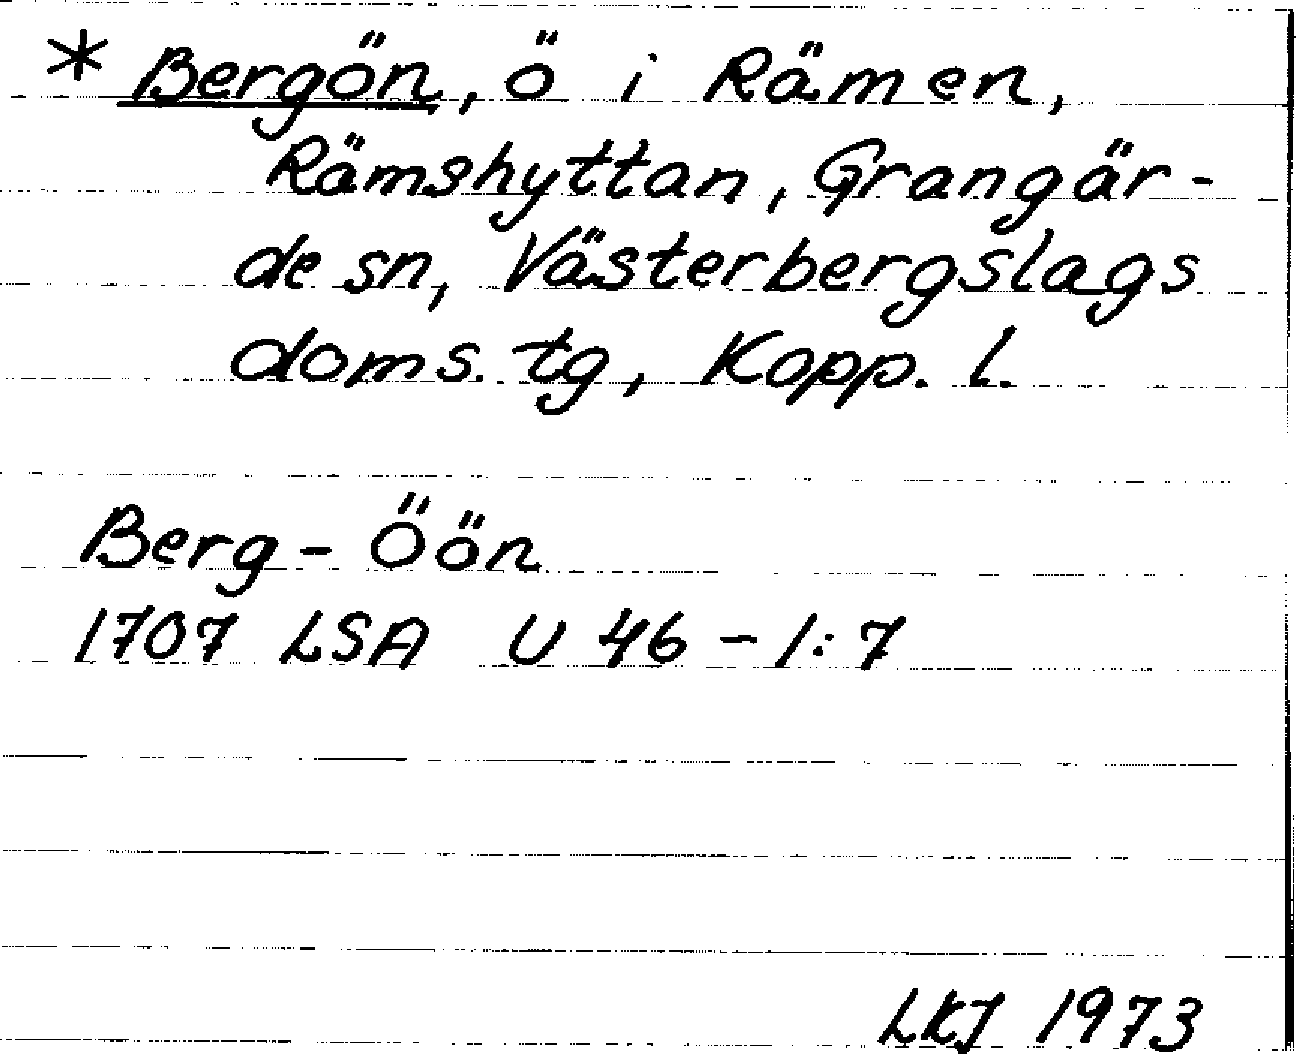 * Bergön, ö i Rämen,
Rämshyttan, Grangär-
de sn, Västerbergslags
doms. tg, Kopp. l.
Berg - Öön
1707 LSA U 46 - 1:7
LKJ 1973